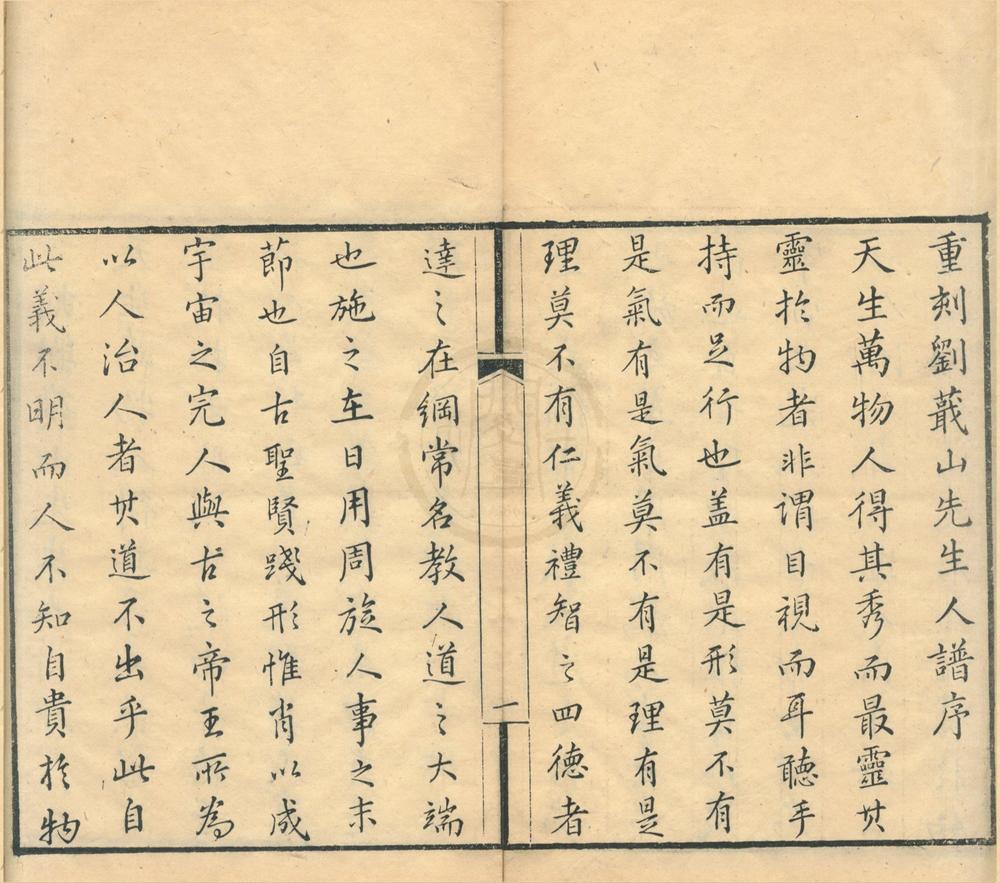 重刻劉蕺山先生人譜序
天生萬物人得其秀而最靈其
靈於物者非謂目視而耳聽手
持而足行也盖有是形莫不有
是氣有是氣莫不有是理有是
理莫不有仁義禮智之四德者
一
達之在綱常名教人道之大端
也施之在日用周旋人事之末
節也自古聖賢踐形惟肖以成
宇宙之完人與古之帝王所為
以人治人者其道不出乎此自
此義不明而人不知自貴於物